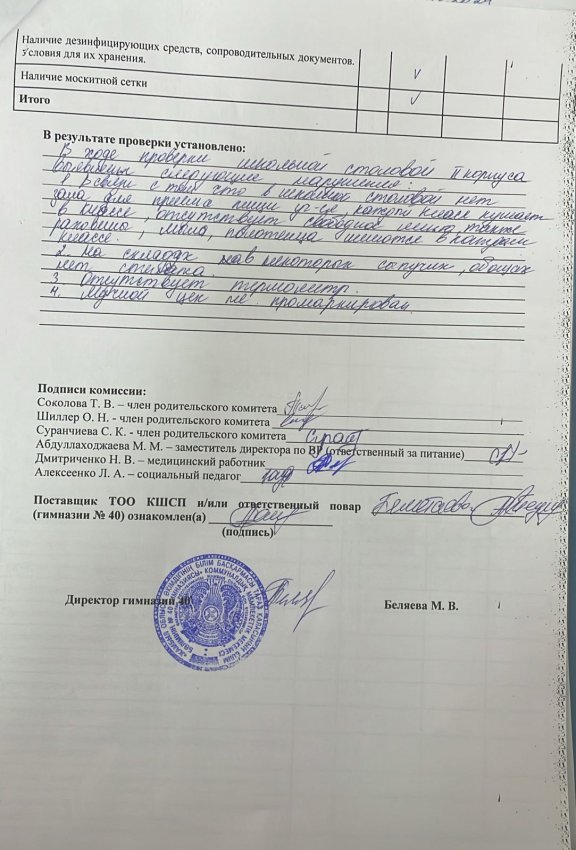 Наличие дезинфицирующих средств, сопроводительных документов.
Условия для их хранения.
Наличие москитной сетки
Итого
В результате проверки установлено:
В ходе проверки школьной столовой II корпуса
выявлены следующие нарушения:
1. В связи с тем что в школьной столовой нет
зала для приема пищи уч-ся каждый класс кушает
в классе, отсутствует также
раковины, мыла, полотенца в каждом
классе.
2. На складах некоторых сыпучих, овощах
нет
3. Отсутствует термометр.
4. Мучной цех не промаркирован.
Подписи комиссии:
Соколова Т. В. – член родительского комитета
Шиллер О. Н. - член родительского комитета
Суранчиева С. К. - член родительского комитета
Абдуллаходжаева М. М. – заместитель директора по ВР (ответственный за питание)
Дмитриченко Н. В. – медицинский работник
Алексеенко Л. А. – социальный педагог
Поставщик ТОО КШСП и/или ответственный повар
(гимназии № 40) ознакомлен(а)
(подпись)
Директор гимназии 40
Беляева М. В.